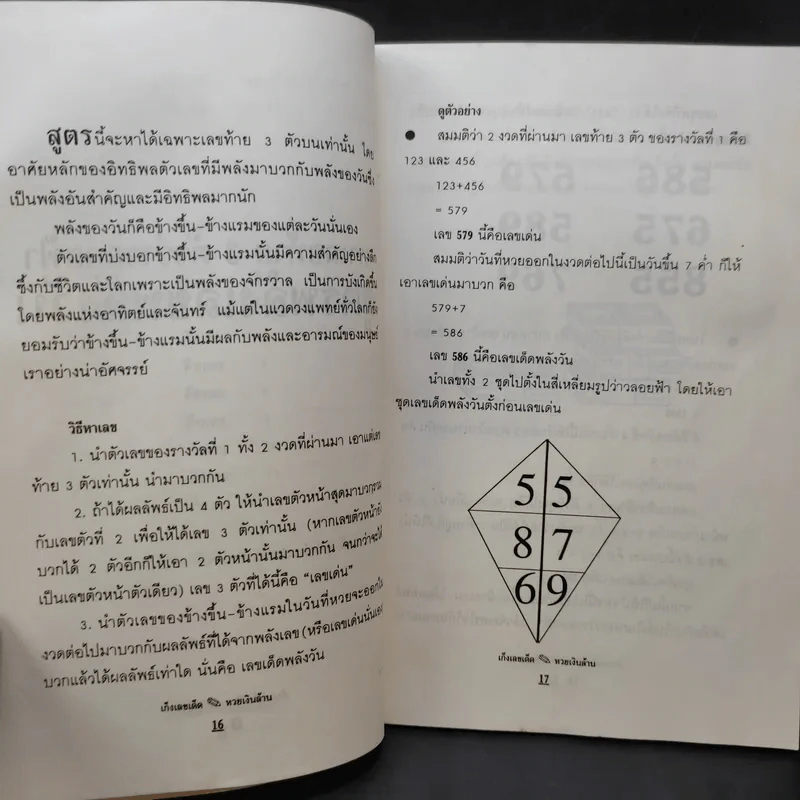 สูตรนี้จะหาได้เฉพาะเลขท้าย 3 ตัวบนเท่านั้น โดย
อาศัยหลักของอิทธิพลตัวเลขที่มีพลังมาบวกกับพลังของวันซึ่ง
เป็นพลังอันสำคัญและมีอิทธิพลมากนัก
พลังของวันก็คือข้างขึ้น-ข้างแรมของแต่ละวันนั่นเอง
ตัวเลขที่บ่งบอกข้างขึ้น-ข้างแรมนั้นมีความสำคัญอย่างลึก
ซึ้งกับชีวิตและโลกเพราะเป็นพลังของจักรวาล เป็นการบังเกิดขึ้น
โดยพลังแห่งอาทิตย์และจันทร์ แม้แต่ในแวดวงแพทย์ทั่วโลกก็ยัง
ยอมรับว่าข้างขึ้น-ข้างแรมนั้นมีผลกับพลังและอารมณ์ของมนุษย์
เราอย่างน่าอัศจรรย์
วิธีหาเลข
1. นำตัวเลขของรางวัลที่ 1 ทั้ง 2 งวดที่ผ่านมา เอาแต่เลข
ท้าย 3 ตัวเท่านั้น นำมาบวกกัน
2. ถ้าได้ผลลัพธ์เป็น 4 ตัว ให้นำเลขตัวหน้าสุดมาบวกรวม
กับเลขตัวที่ 2 เพื่อให้ได้เลข 3 ตัวเท่านั้น (หากเลขตัวหน้ายัง
บวกได้ 2 ตัวอีกก็ให้เอา 2 ตัวหน้านั้นมาบวกกัน จนกว่าจะได้
เป็นเลขตัวหน้าตัวเดียว) เลข 3 ตัวที่ได้นี้คือ "เลขเด่น"
3. นำตัวเลขของข้างขึ้น-ข้างแรมในวันที่หวยจะออกใน
งวดต่อไปมาบวกกับผลลัพธ์ที่ได้จากพลังเลข (หรือเลขเด่นนั่นเอง)
บวกแล้วได้ผลลัพธ์เท่าใด นั่นคือ เลขเด็ดพลังวัน
เก็งเลขเด็ด หวยเงินล้าน
16
ดูตัวอย่าง
● สมมติว่า 2 งวดที่ผ่านมา เลขท้าย 3 ตัว ของรางวัลที่ 1 คือ
123 และ 456
123+456
= 579
เลข 579 นี้คือเลขเด่น
สมมติว่าวันที่หวยออกในงวดต่อไปนี้เป็นวันขึ้น 7 ค่ำ ก็ให้
เอาเลขเด่นมาบวก คือ
579+7
= 586
เลข 586 นี้คือเลขเด็ดพลังวัน
นำเลขทั้ง 2 ชุดไปตั้งในสี่เหลี่ยมรูปว่าวลอยฟ้า โดยให้เอา
ชุดเลขเด็ดพลังวันตั้งก่อนเลขเด่น
5 5
8 7
6 9
เก็งเลขเด็ด หวยเงินล้าน
17